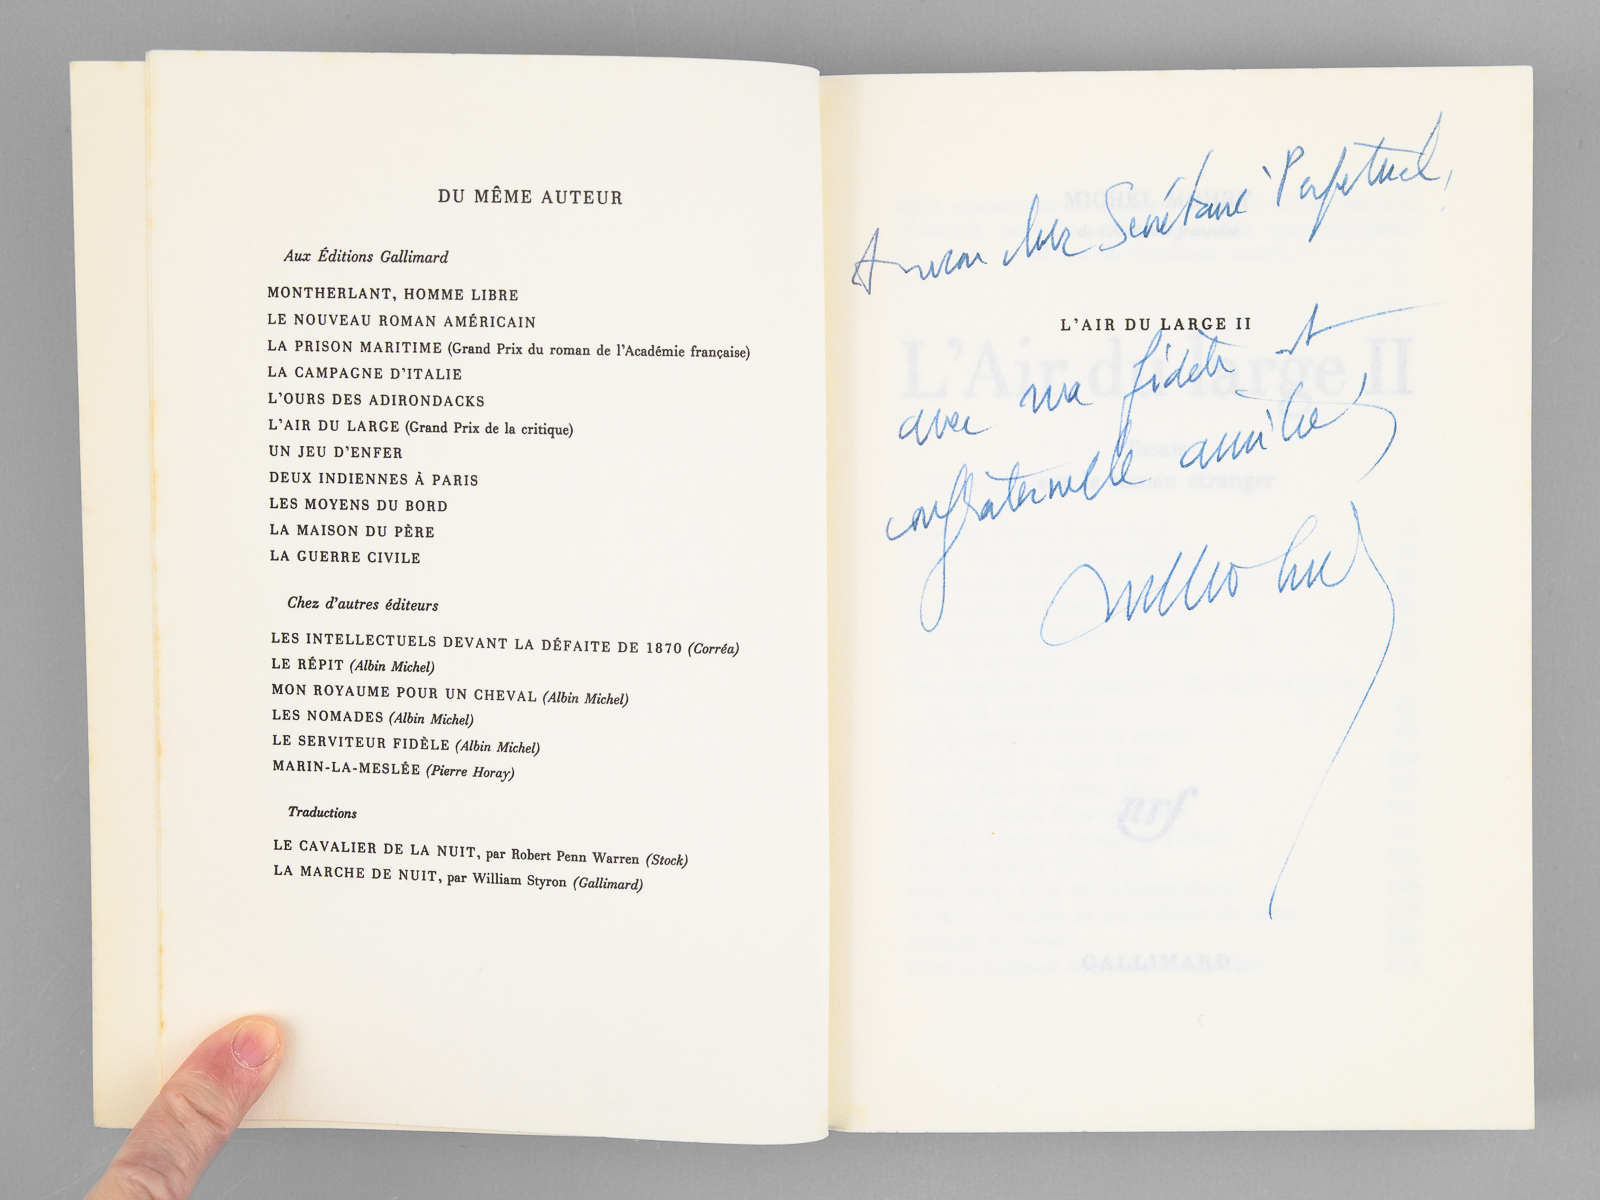 DU MÊME AUTEUR
Aux Éditions Gallimard
MONTHERLANT, HOMME LIBRE
LE NOUVEAU ROMAN AMÉRICAIN
LA PRISON MARITIME (Grand Prix du roman de l'Académie française)
LA CAMPAGNE D'ITALIE
L'OURS DES ADIRONDACKS
L'AIR DU LARGE (Grand Prix de la critique)
UN JEU D'ENFER
DEUX INDIENNES À PARIS
LES MOYENS DU BORD
LA MAISON DU PÈRE
LA GUERRE CIVILE
Chez d'autres éditeurs
LES INTELLECTUELS DEVANT LA DÉFAITE DE 1870 (Corréa)
LE RÉPIT (Albin Michel)
MON ROYAUME POUR UN CHEVAL (Albin Michel)
LES NOMADES (Albin Michel)
LE SERVITEUR FIDÈLE (Albin Michel)
MARIN-LA-MESLÉE (Pierre Horay)
Traductions
LE CAVALIER DE LA NUIT, par Robert Penn Warren (Stock)
LA MARCHE DE NUIT, par William Styron (Gallimard)
A mon cher Secrétaire Perpétuel,
L'AIR DU LARGE II
avec ma fidèle et
confraternelle amitié,
MICHEL MOHRT
L'Air du large II
roman étranger
nrf
GALLIMARD